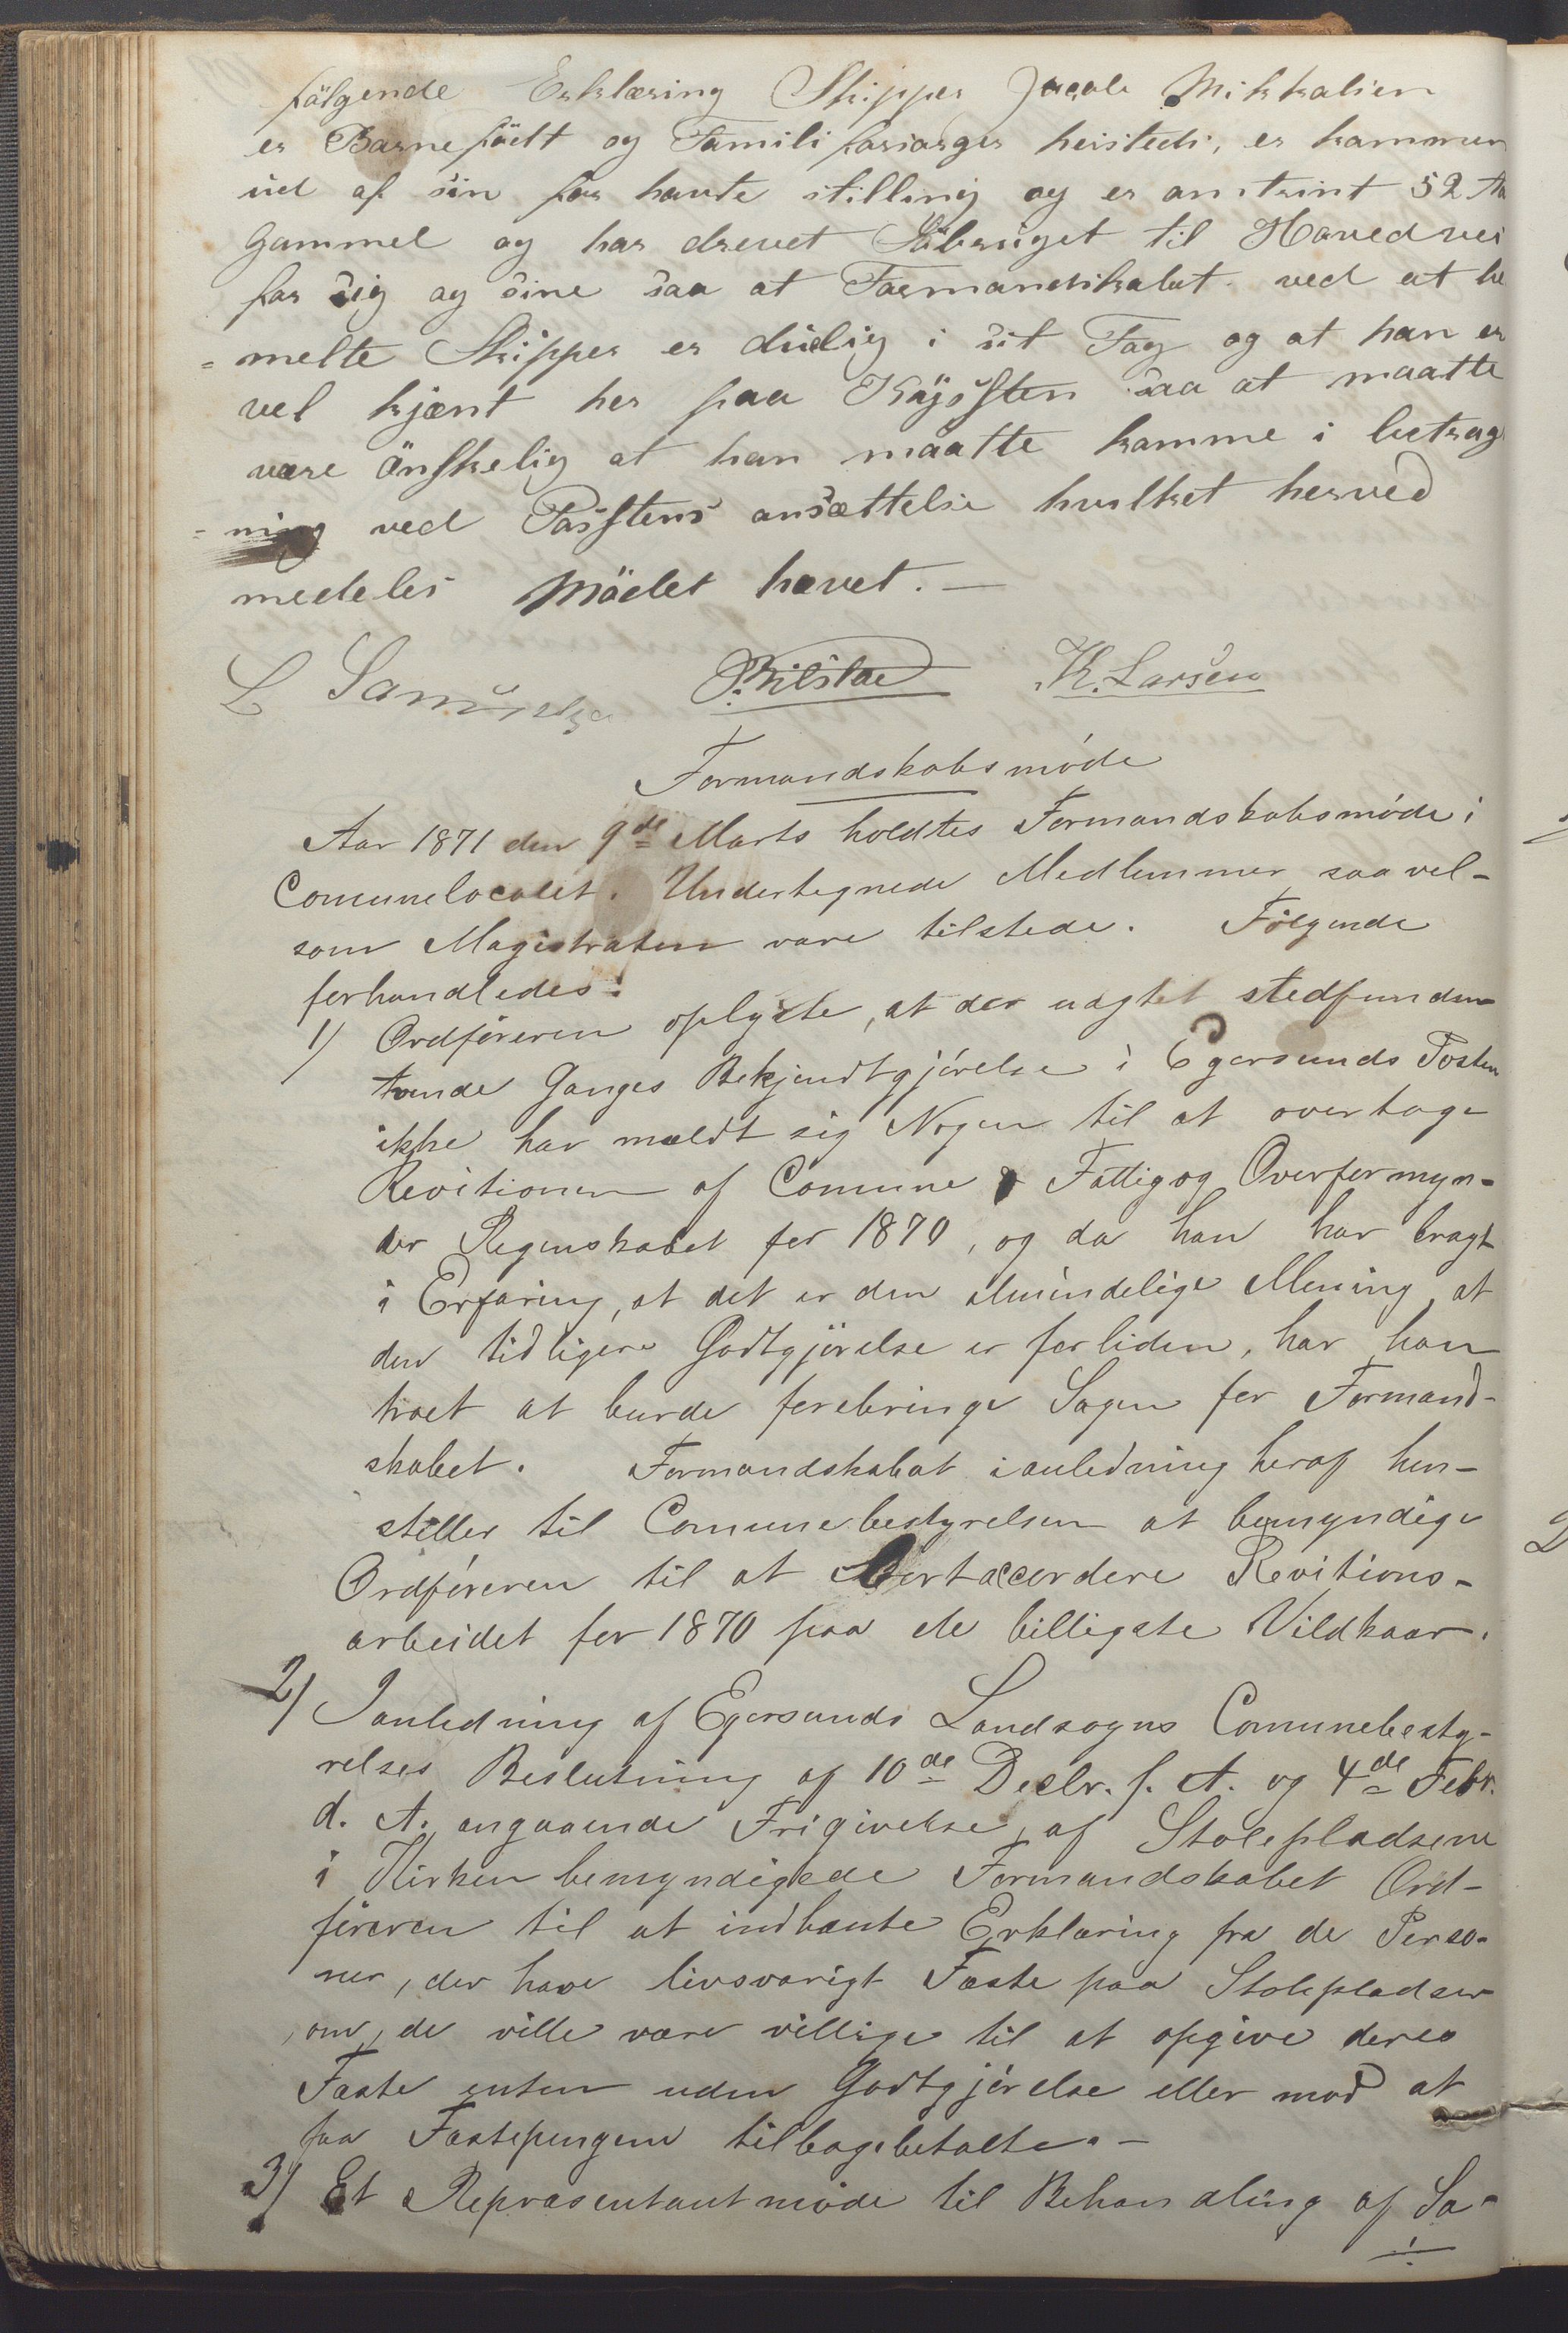 fölgende Erklæring Skipper Jacob Mikkalsen
er Barnefödt og Familiforsorger heisteds, er kommen
ud af sin for havte stilling og er omtrint 52 Aa
Gammel og har drevet Söbruget til Hovedvei
for sig og sine saa at Formandskabet ved at be
=melte Skipper er dülig i sit Fag og at han er
vel kjent her paa Kÿsten saa at maatte
være önskelig at han maatte komme i betrag
=ning ved Posstens ansættelse hvilket herved
medeles Mödet hævet. —
L Samuelsen K. Larsen
Formandskabsmöde
Aar 1871 den 9de Marts holdtes Formandskabsmöde i
Comunelocalet. Undertegnede Medlemmer saavel-
som Magistraten vare tilstede. Fölgende
forhandledes:
1) Ordföreren oplyste, at der uagtet stedfunden
tvende Ganges Bekjendtgjörelse i Egersunds Posten
ikke har meldt sig Nogen til at overtage
Revitionen af Comune & Fattig og Overformyn-
der Regnskabet for 1870, og da han har bragt
i Erfaring, at det er den almindelige Mening, at
den tidligere Godtgjörelse er forliden, har han
troet at burde forebringe Sagen for Formand-
skabet. Formandskabet ianledning heraf hen-
stiller til Comunebestyrelsen at bemyndige
Ordföreren til at Bortaccordere Revitions-
arbeidet for 1870 paa de billigste Vildkaar.
2) Ianledning af Egersunds Landsogns Comunebesty-
relses Beslutning af 10de Decbr. f. A. og 4de Febr.
d. A. angaaende Frigivelse af Stolepladsene
i Kirken bemyndigede Formandskabet Ord-
föreren til at indhente Erklæring fra de Perso-
ner, der have livsvarigt Fæste paa Stolepladser
om de ville være villige til at opgive deres
Fæste enten uden Godtgjörelse eller mod at
faa Fæstepengene tilbagebetalte. —
3) Et Repræsentantmöde til Behandling af Sa-